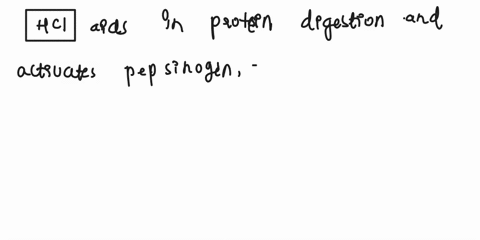 HCl aids in protein digestion and
activates pepsinogen,